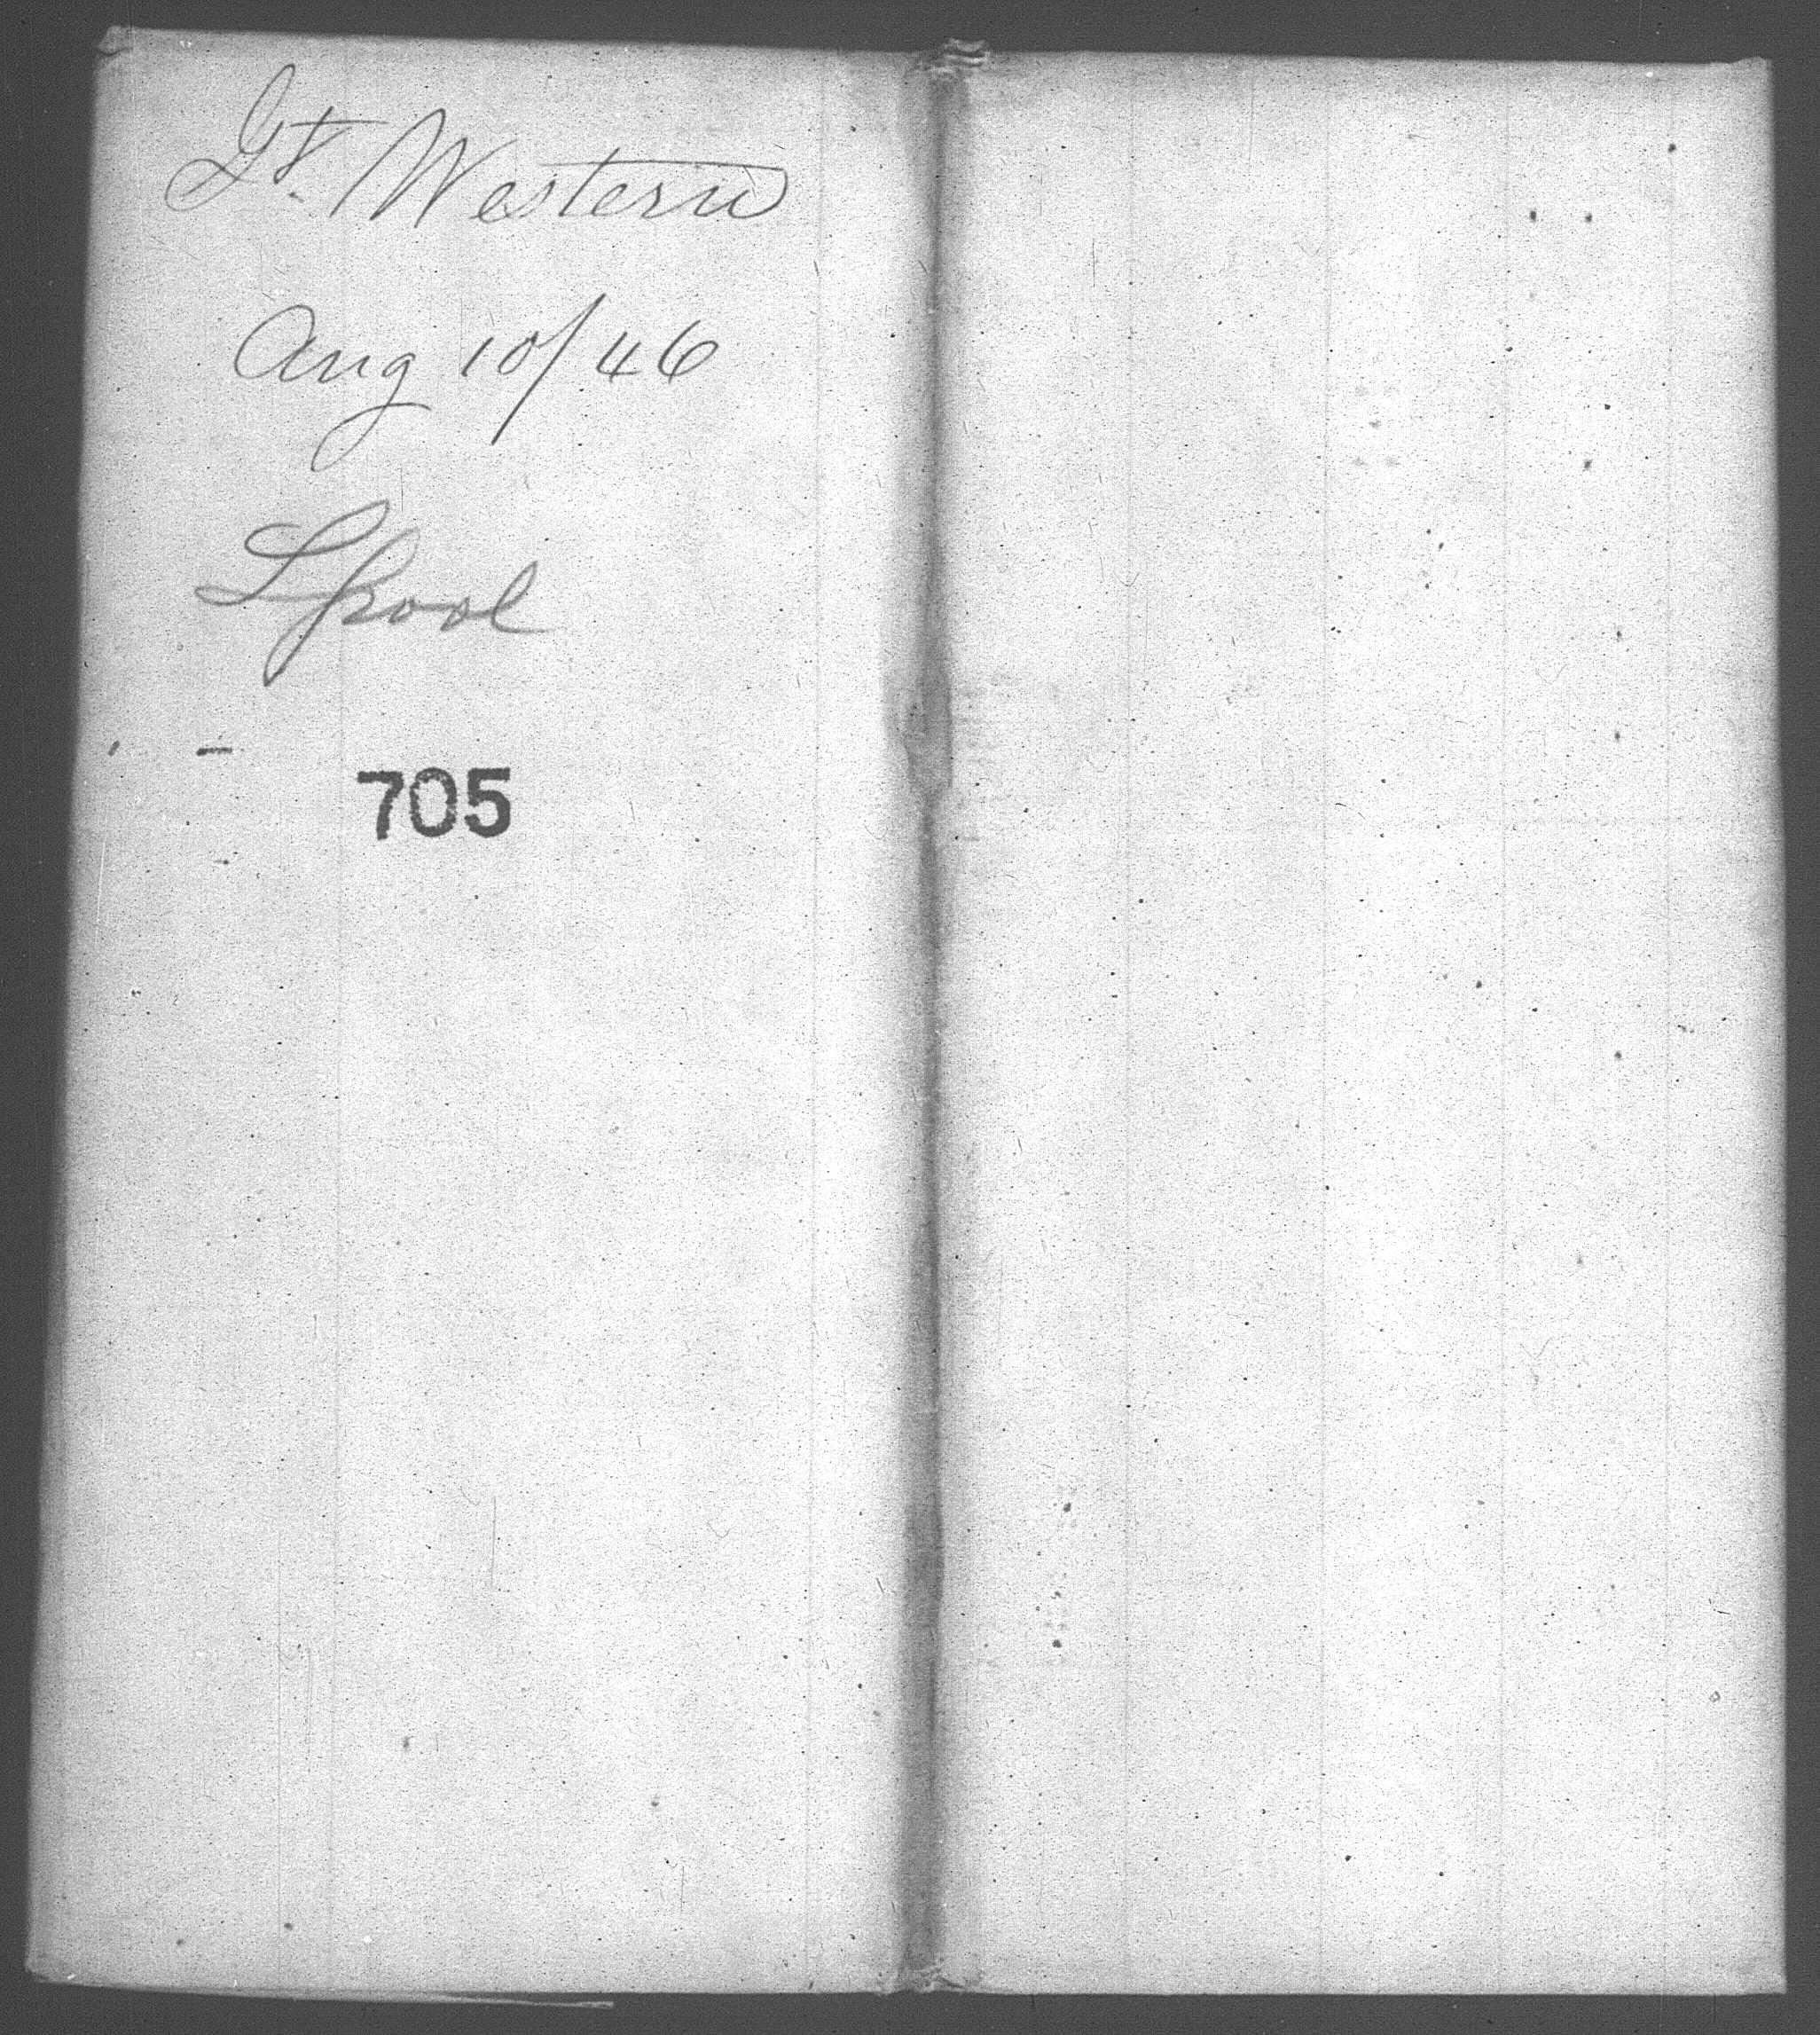 Gt. Western
Aug 10/46
Lpool
705